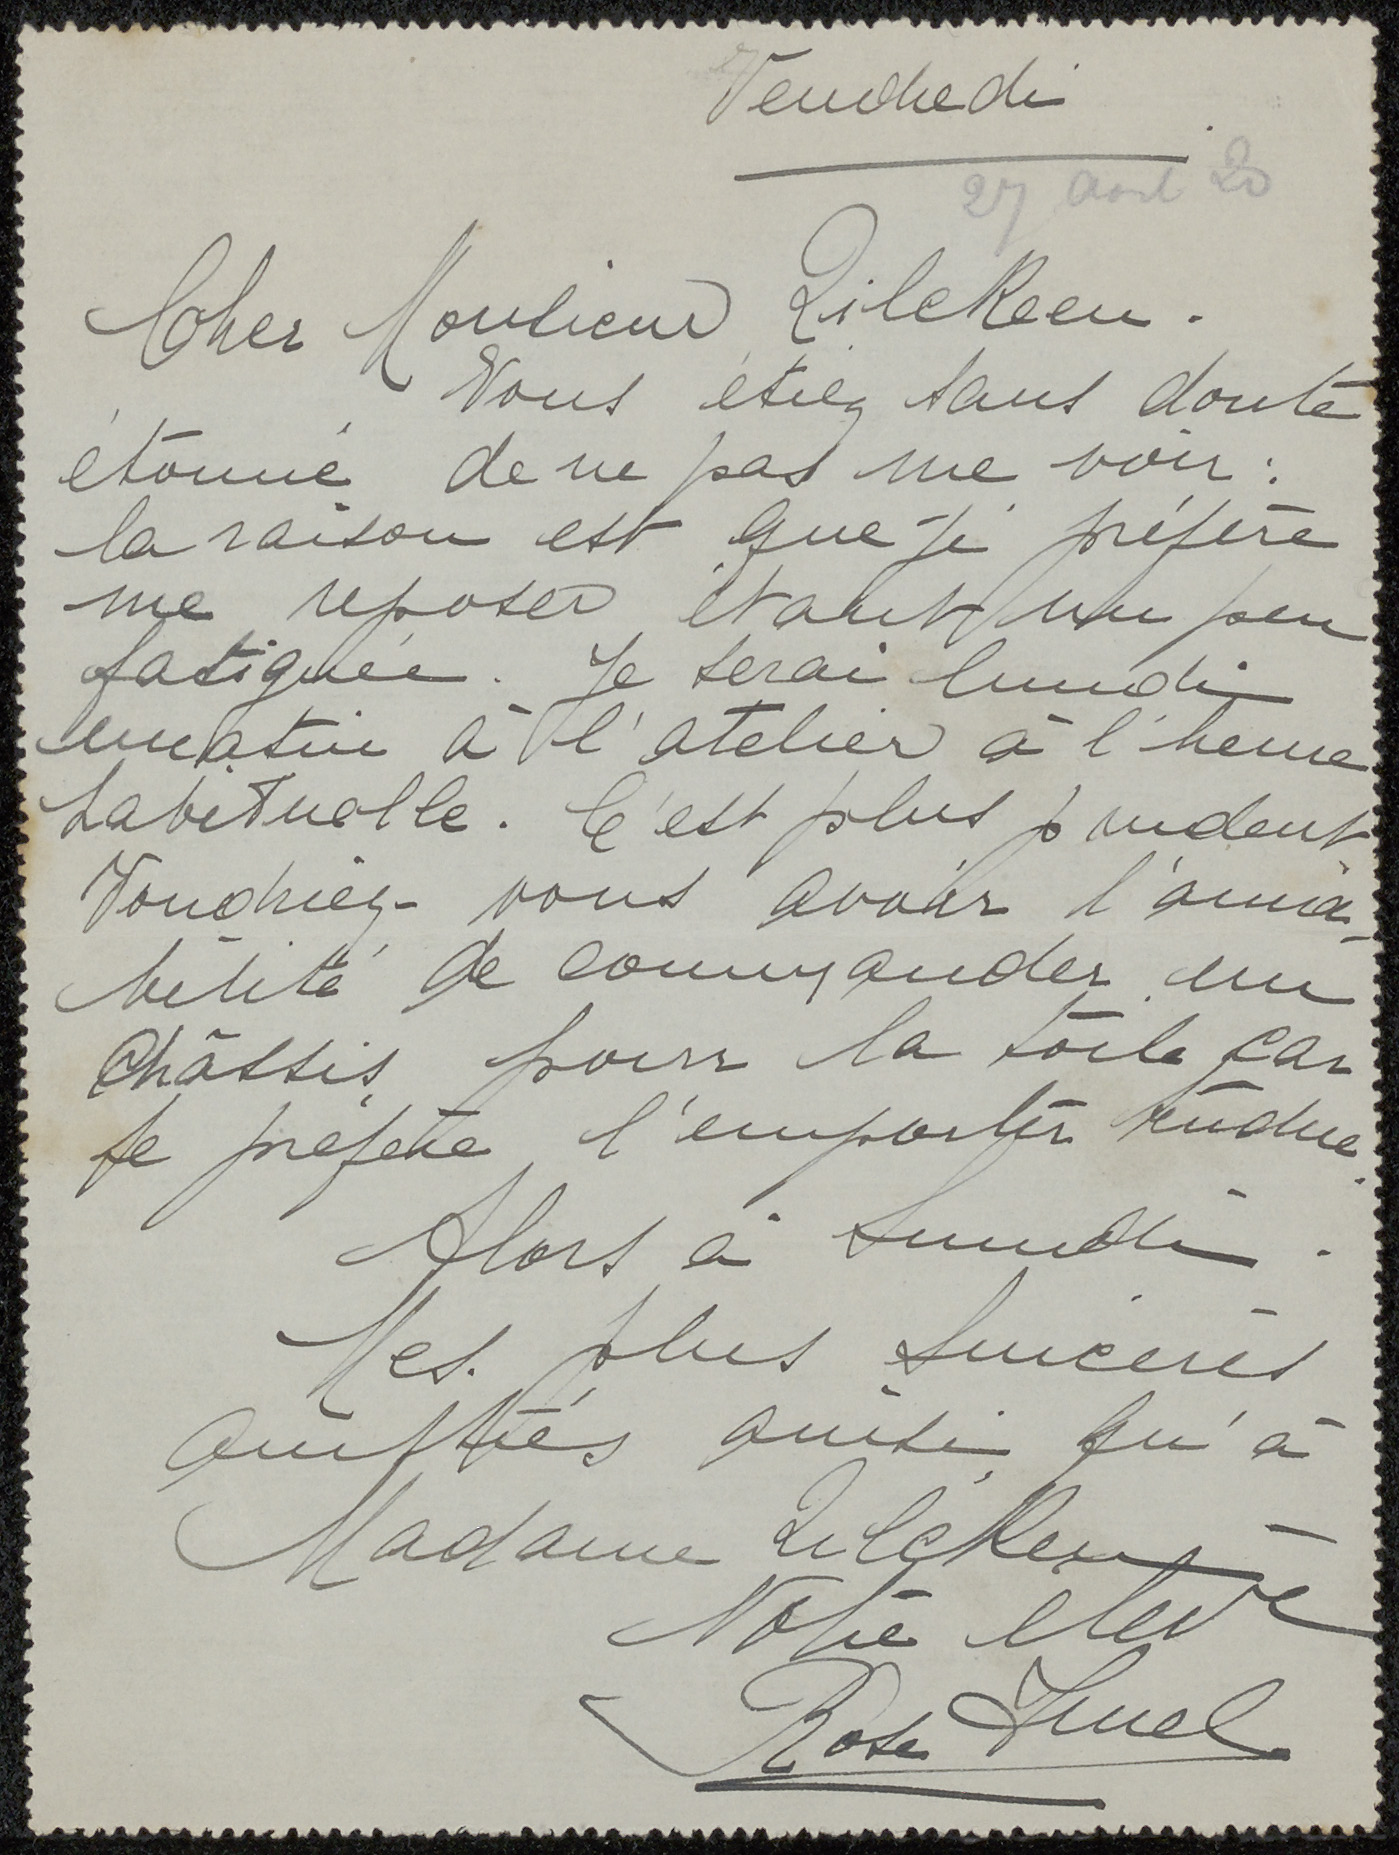 Vendredi
27 Aout 20
Cher Monsieur Zilckeen.
Vous étiez sans doute
étonné de ne pas me voir :
la raison est que je préfère
me reposer étant un peu
fatiguée. Je serai lundi
matin à l'atelier à l'heure
habituelle. C'est plus prudent
Voudriez-vous avoir l'ama-
bilité de commander un
châssis pour la toile car
je préfère l'emporter tendue.
Alors à Lundi.
Mes plus sincères
amitiés ainsi qu'à
Madame Zilcken
Votre élève
Rose